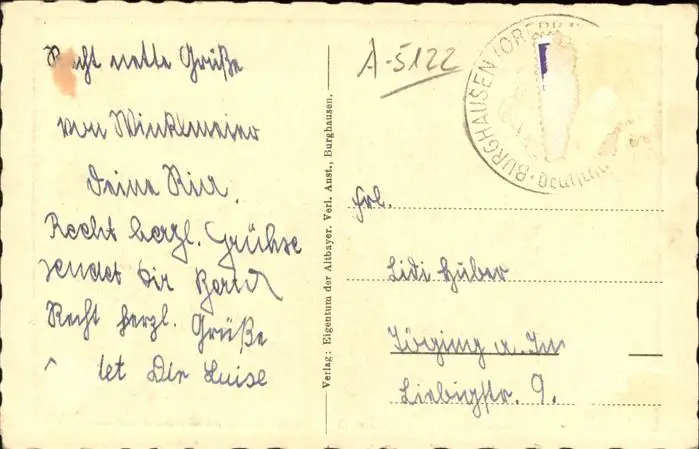 Recht nette Grüße
von Winklmeier
Deine
Recht herzl. Grühse
sendet Dir
Recht herzl. Grüße
tet Dir Luise
Verlag: Eigentum der Altbayer. Verl. Anst., Burghausen.
A-5122
BURGHAUSEN (OBERB
Frl.
Lidi Huber
Töging a. Inn
Liebigstr. 9.